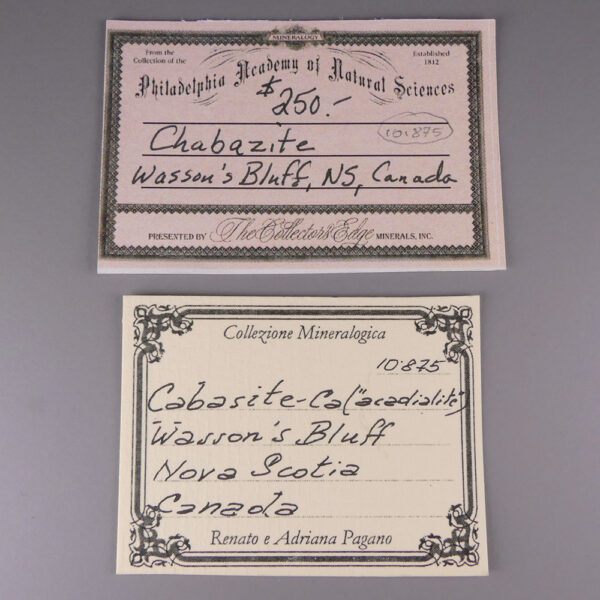 MINERALOGY
From the
Collection of the
Established
1812
Philadelphia Academy of Natural Sciences
$250.-
10.875
Chabazite
Wasson's Bluff, NS, Canada
PRESENTED BY The Collector's Edge MINERALS, INC.
Collezione Mineralogica
10.875
Cabasite-Ca ("acadialite")
Wasson's Bluff
Nova Scotia
Canada
Renato e Adriana Pagano